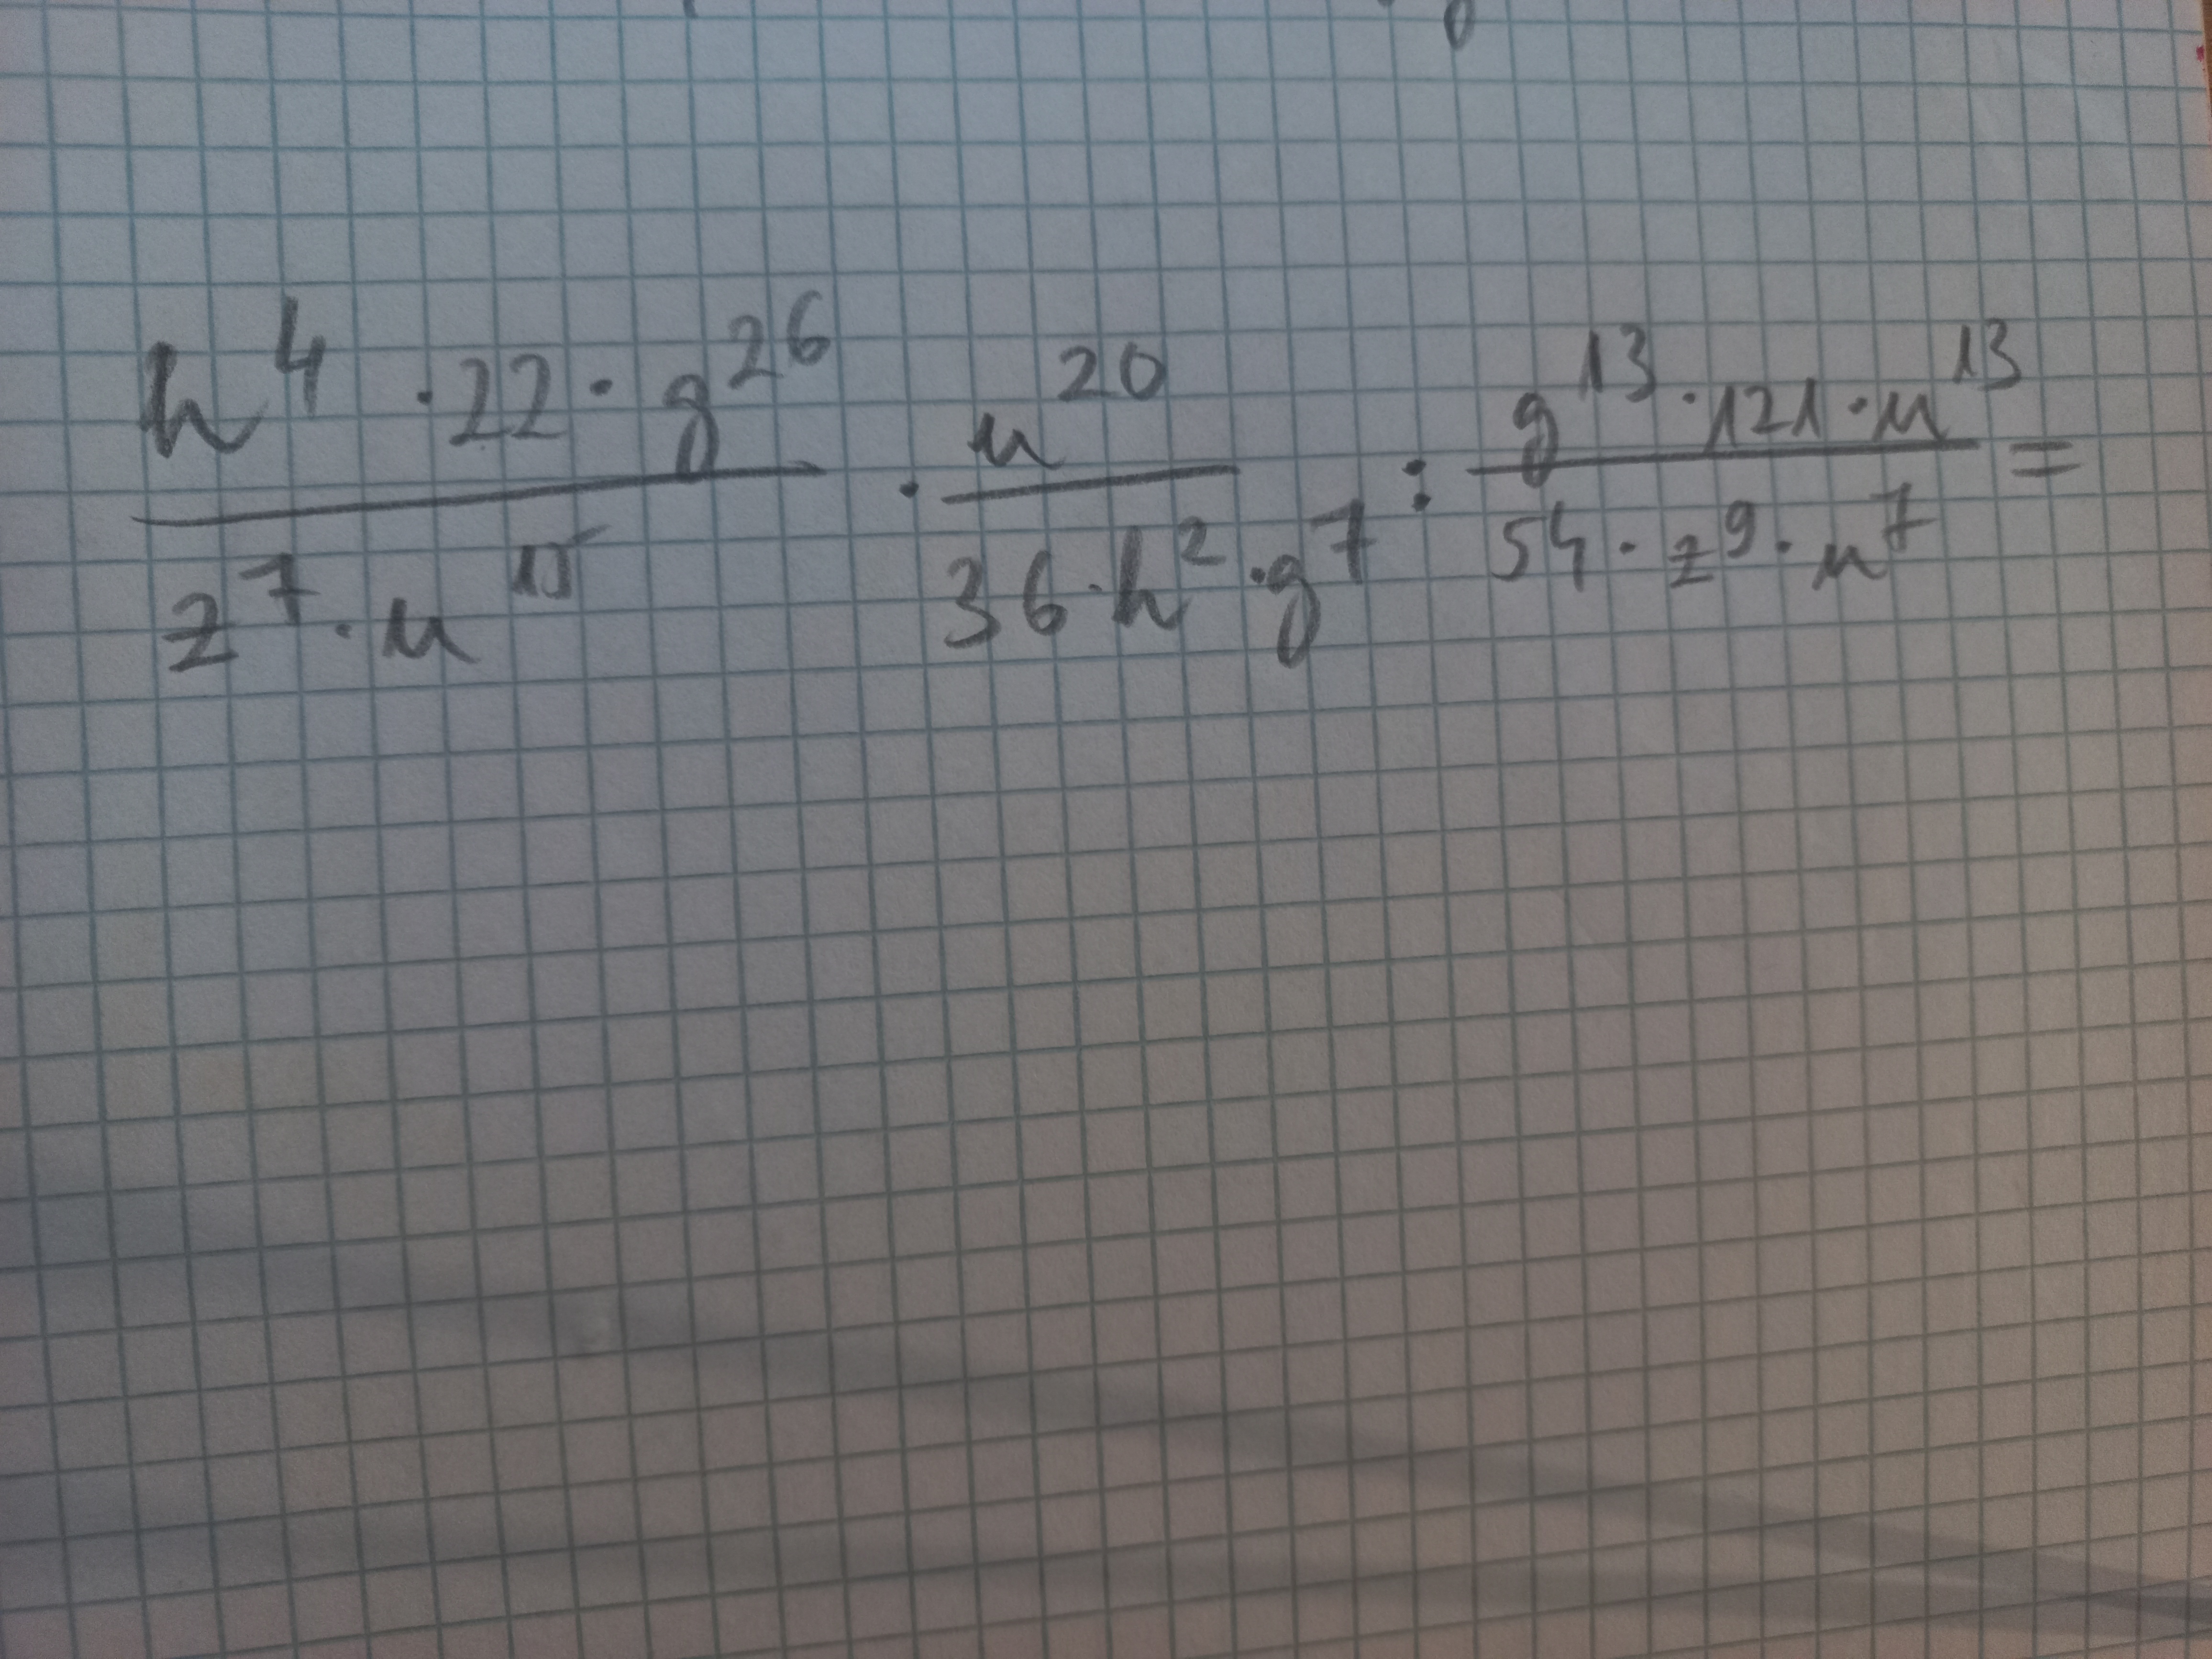 h⁴ · 22 · g²⁶ / z⁷ · u¹⁵ · u²⁰ / 36 · h² · g⁷ : g¹³ · 121 · u¹³ / 54 · z⁹ · u⁷ =